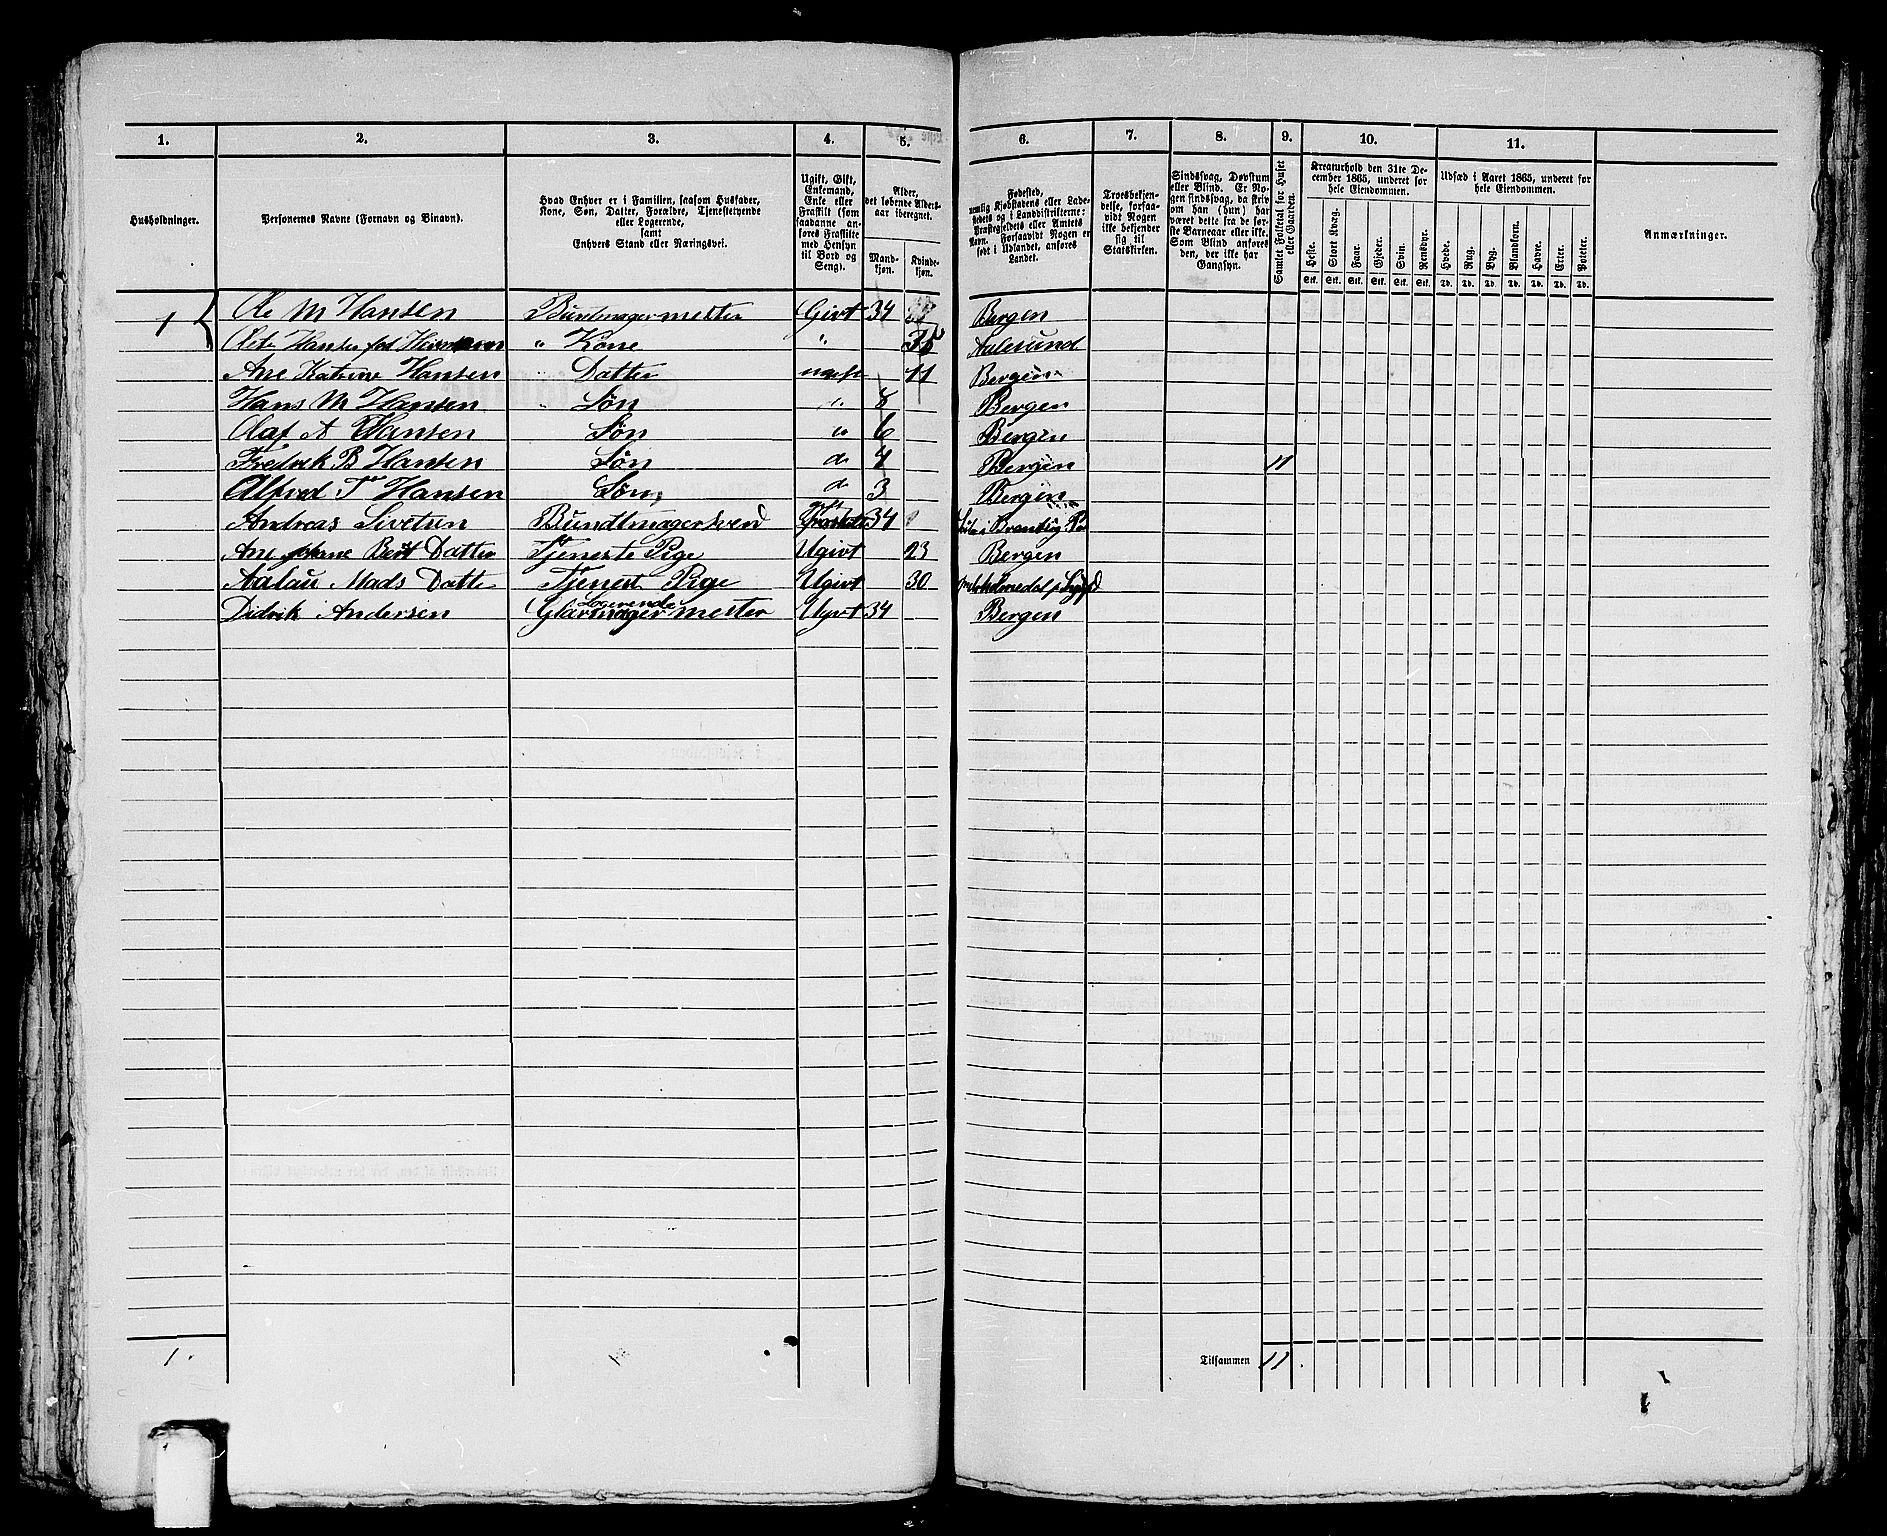 1. 2. 3. 4. 5. 6. 7. 8. 9. 10. 11.
Husholdninger.
Personernes Navne (Fornavn og Binavn).
Hvad Enhver er i Familien, saasom Husfader,
Kone, Søn, Datter, Forældre, Tjenestetyende
eller Logerende,
samt
Enhvers Stand eller Næringsvei.
Ugift, Gift,
Enkemand,
Enke eller
Fraskilt (som
saadanne an-
føres Fraskilte
med Hensyn
til Bord og
Seng).
Alder,
det løbende Alders-
aar iberegnet.
Mand-
kjøn.
Kvinde-
kjøn.
Fødested,
nemlig Kjøbstadens eller Lade-
stedets og i Landdistrikterne:
Præstegjeldets eller Amtets
Navn. Forsaavidt Nogen er
født i Udlandet, anføres
Landet.
Troesbekjen-
delse, forsaa-
vidt Nogen
ikke bekjender
sig til
Statskirken.
Sindssvag, Døvstum
eller Blind. Er No-
gen sindssvag, da skriv
om han (hun) har
været dette fra de før-
ste Barneaar eller ikke.
Som Blind anføres
den, der ikke har
Gangsyn.
Samlet Folketal for Huset
eller Gaarden.
Kreaturhold den 31te De-
cember 1865, underet for
hele Eiendommen.
Heste. Stort Kvæg. Faar. Gjeder. Svin. Rensdyr.
Stk. Stk. Stk. Stk. Stk. Stk.
Udsæd i Aaret 1865, underet for
hele Eiendommen.
Hvede. Rug. Byg. Blandkorn. Havre. Erter. Poteter.
Td. Td. Td. Td. Td. Td. Td.
Anmærkninger.
1 Ole M Hansen Buntmagermester Givt 34 Bergen
Hansen " Kone " 35 Aalesund
Ane Katrine Hansen " Datter 11 Bergen
Hans M Hansen " Søn 8 Bergen
Olaf A Hansen Søn " 6 Bergen
Fredrik B Hansen Søn do 4 Bergen 11
Alfred T Hansen Søn do 3 Bergen
Andreas Bundtmagersvend 34
Ane Datter Tjeneste Pige Ugivt 23 Bergen
Mads Datte Tjenest Pige Ugivt 30
Logerende
Didrik Andersen Glarmager mester Ugivt 34 Bergen
1. Tilsammen 11.